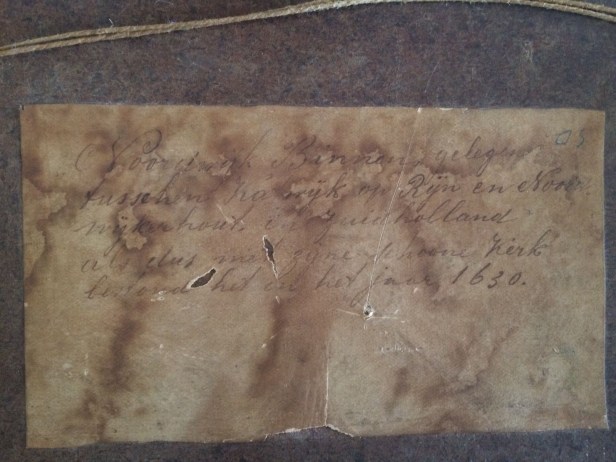 Noordwijk Binnen, gelegen
tusschen Katwijk op Rijn en Noord-
wijkerhout, in Zuid holland
aldus met zijne schoone Kerk
bestond het in het jaar 1630.